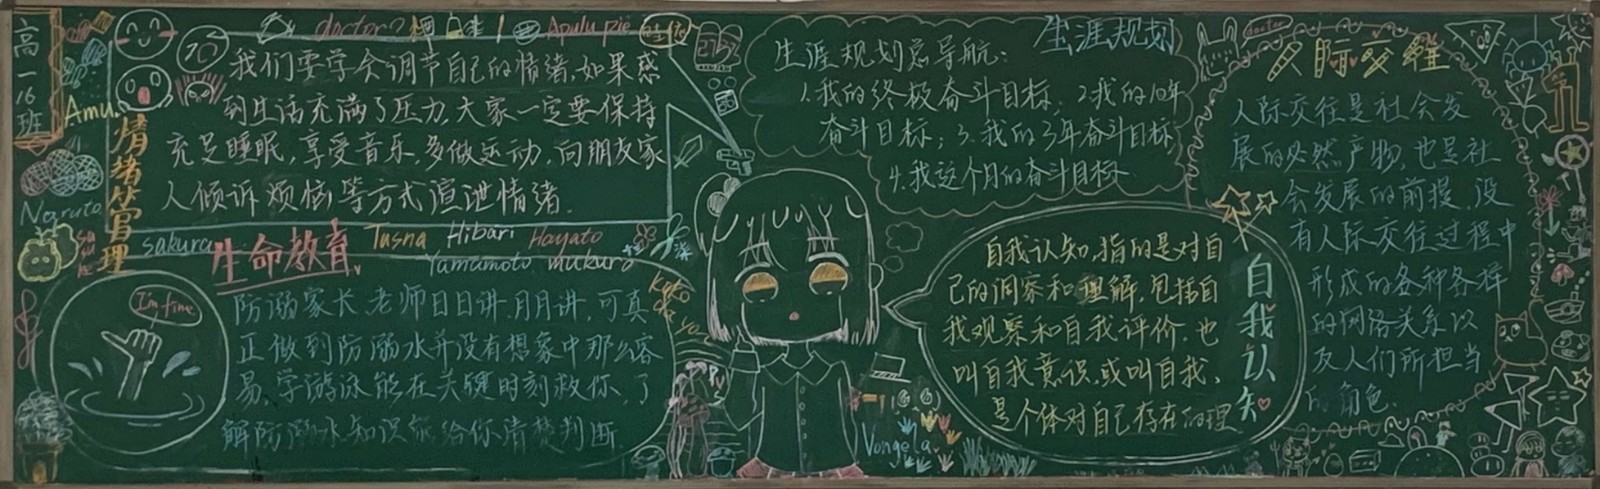 高一16班
doctor?
Apulu pie
Amu.
情绪少管理
我们要学会调节自己的情绪.如果感
到生活充满了压力.大家一定要保持
充足睡眠,享受音乐,多做运动,向朋友家
人倾诉烦恼等方式渲泄情绪.
Naruto
sakura
生命教育
Tusna Hibari Hayato
Yamamoto mukuro
I'm fine
防溺家长、老师日日讲.月月讲,可真
正做到防溺水并没有想象中那么容
易,学游泳能在关键时刻救你,了
解防溺水知识能给你清楚判断.
生涯规划
生涯规划总导航:
1.我的终极奋斗目标; 2.我的10年
奋斗目标; 3.我的3年奋斗目标
4.我这个月的奋斗目标
自我认知
自我认知,指的是对自
己的洞察和理解,包括自
我观察和自我评价.也
叫自我意识,或叫自我,
是个体对自己存在的理
Vongela
doctor
人际交往
人际交往是社会发
展的必然产物,也是社
会发展的前提,没
有人际交往过程中
形成的各种各样
的网络关系以
及人们所担当
的角色.